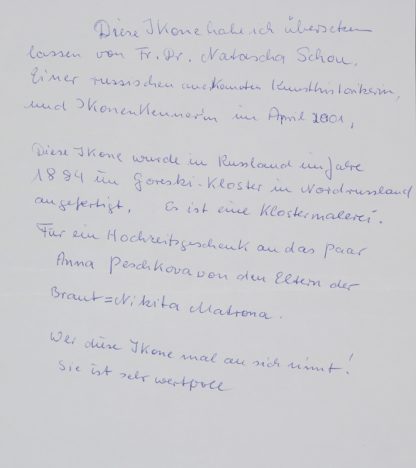 Diese Ikone habe ich übersetzen
lassen von Fr. Dr. Natascha Schon.
Einer russischen anerkannten Kunsthistorikerin,
und Ikonenkennerin im April 2001.
Diese Ikone wurde in Russland im Jahre
1894 im Goreski-Kloster in Nordrussland
angefertigt. Es ist eine Klostermalerei.
Für ein Hochzeitsgeschenk an das Paar
Anna Peschkova von den Eltern der
Braut=Nikita Matrona.
Wer diese Ikone mal an sich nimt!
Sie ist sehr wertvoll